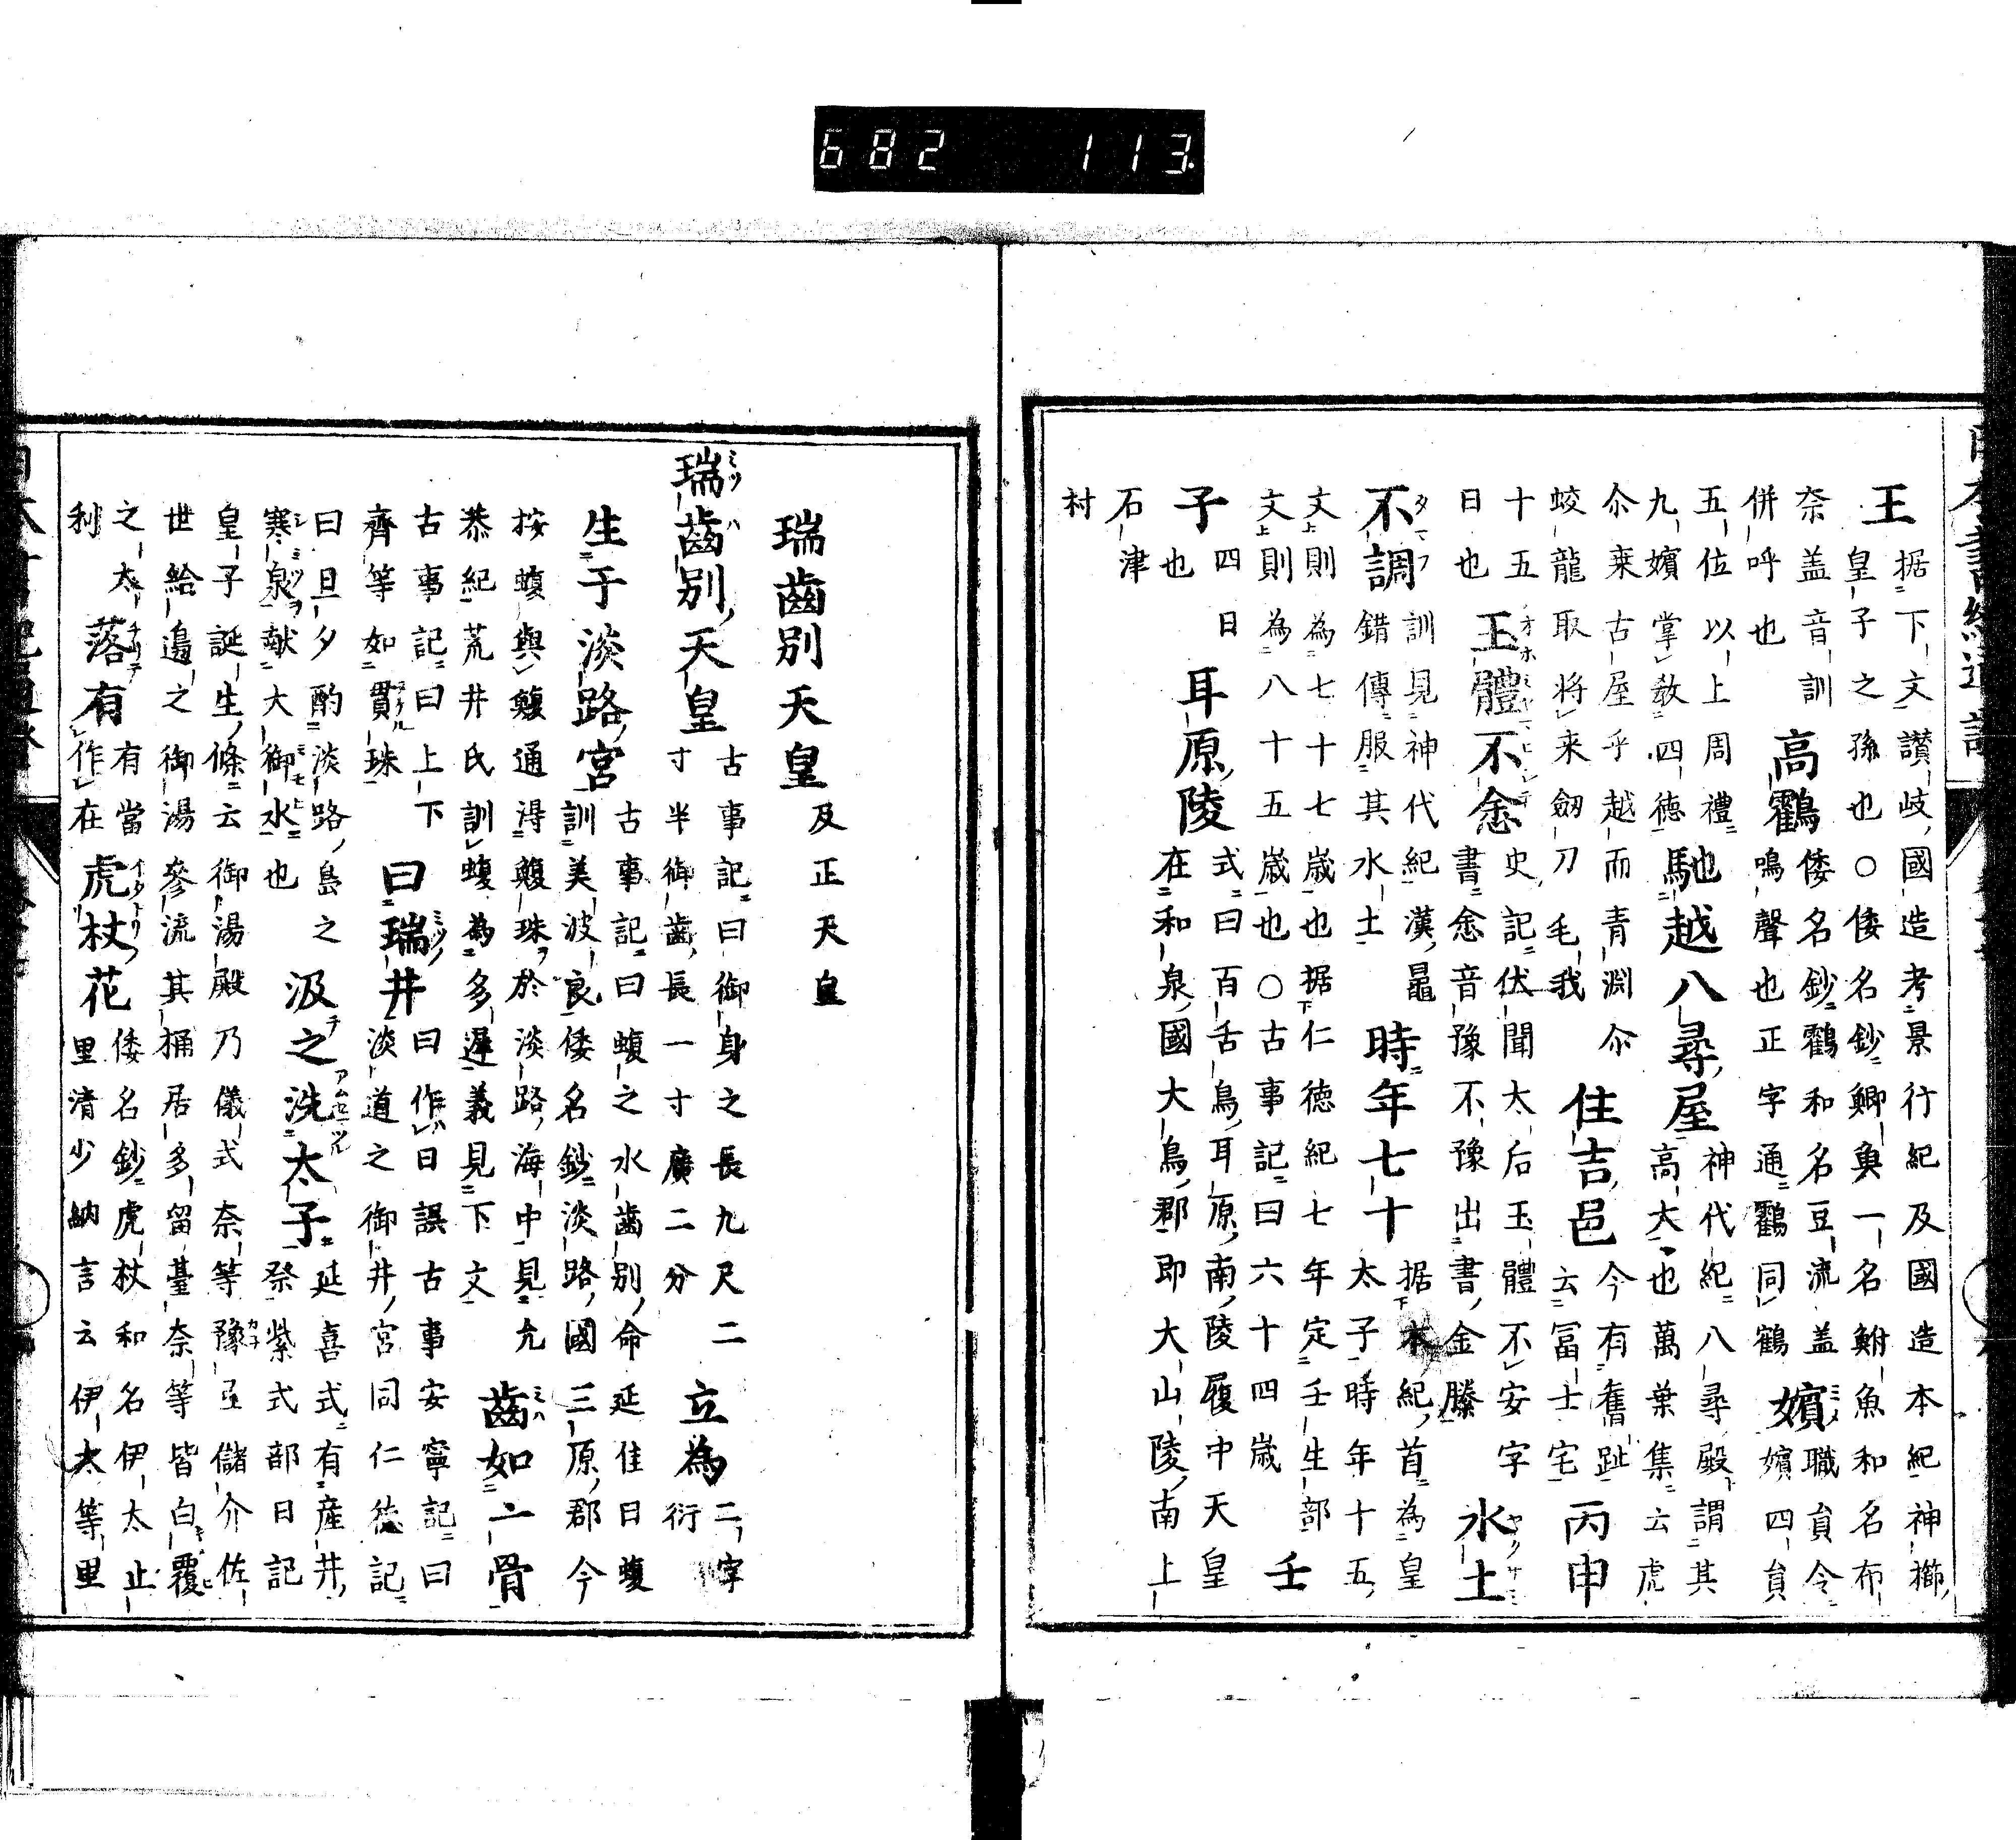 王据下文讃岐國造考景行紀及國造本紀神櫛
皇子之孫也○倭名鈔鯽魚一名鮒魚和名布
奈盖音訓
併呼也高鸖倭名鈔鸖和名豆流盖
鳴聲也正字通鸖同鶴嬪職員令
嬪四員
五位以上周禮
九嬪掌教四徳馳越八尋屋神代紀八尋殿謂其
高大也萬葉集云虎
尒乗古屋乎越而青淵尒
蛟龍取将来劔刀毛我住吉邑今有舊趾
云冨士宅丙申
十五
日也玉體不悆史記伏聞太后玉體不安字
書悆音豫不豫出書金滕水土
不調訓見神代紀漢鼂
錯傳服其水土時年七十据本紀首為皇
太子時年十五
文則為七十七歳也据仁徳紀七年定壬生部
文則為八十五歳也○古事記曰六十四歳壬
子四日
也耳原陵式曰百舌鳥耳原南陵履中天皇
在和泉國大鳥郡即大山陵南上
石津
村
瑞齒別天皇 及正天皇
瑞齒別天皇古事記曰御身之長九尺二
寸半御齒長一寸廣二分立為二字
衍
生于淡路宮古事記曰蝮之水齒別命延佳曰蝮
訓美波良倭名鈔淡路國三原郡今
按蝮與鰒通淂鰒珠於淡路海中見允
恭紀荒井氏訓蝮為多遅義見下文齒如一骨
古事記曰上下
齊等如貫珠曰瑞井曰作日誤古事安寧記曰
淡道之御井宮同仁徳記
曰旦夕酌淡路島之
寒泉献大御水也汲之洗太子延喜式有産井
祭紫式部日記
皇子誕生條云御湯殿乃儀式奈等豫儲介佐
世給邊之御湯參流其桶居多留臺奈等皆白覆
之太
利落有有當
作在虎杖花倭名鈔虎杖和名伊太止
里清少納言云伊太等里
682 113